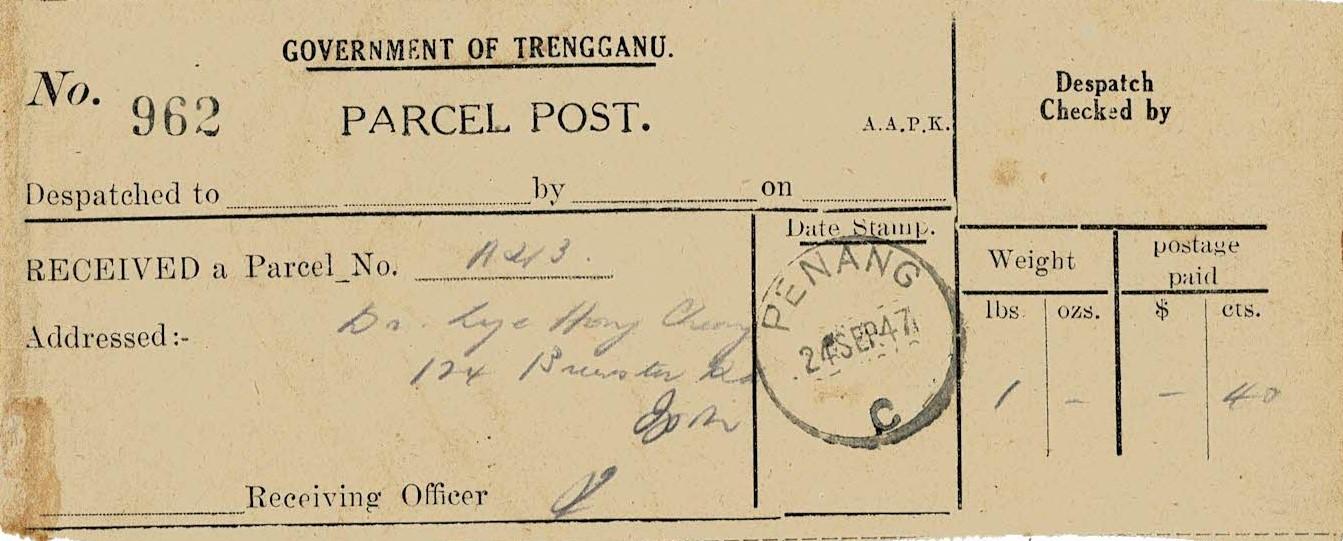 GOVERNMENT OF TRENGGANU.
No. 962
PARCEL POST.
A.A.P.K.
Despatch
Checked by
Despatched to by on
RECEIVED a Parcel No.
Addressed:-
Dr. Lye Hong Cheong
124 Brewster Rd
Ipoh
Receiving Officer
Date Stamp.
PENANG
24 SEP 47
C
Weight
postage
paid
lbs ozs. $ cts.
1 - - 40